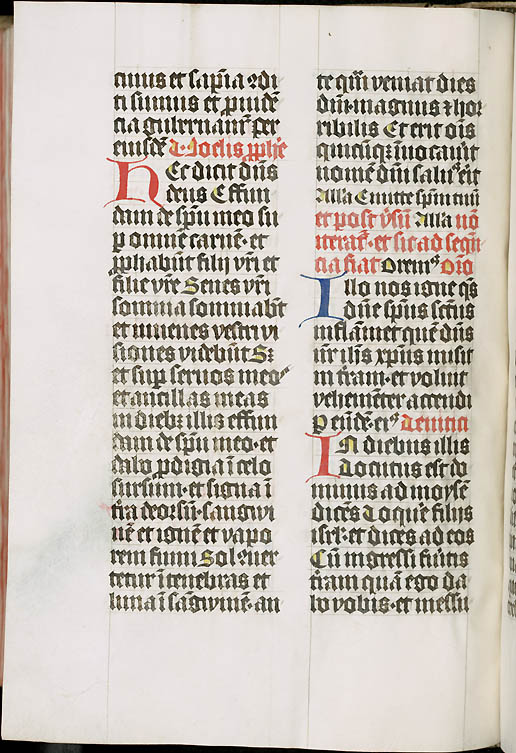 tinus et sap̄ia ⁊ di
ti sumus et prudē
cia gubernamr̄ Per
eiusdē Joelis p̱ph̄e
Hec dicit dn̄s
deus Effun
dam de spū meo su
ꝑ omnē carnē · et
ꝓphabūt filij vr̄i et
filie vr̄e Senes vr̄i
somnia somniabūt
et iuuenes vestri vi
siones videbūt S ꝫ
et suꝑ seruos meoꝰ
et ancillas meas
in diebꝫ illis effun
dam de spū meo · et
dabo ꝓdigia ī celo
sursum · et signa ī
tr̄a deorsū · sangwi
nē et ignē et vapo
rem fumi Sol ꝯuer
tetur ī tenebras et
luna ī sāgwinē · an
te qm̄ veniat dies
dn̄i · magnus ⁊ hor
ribilis Et erit om̄s
quicūqꝫ īuocauīt
nomē dn̄i saluꝰ eīt
Alla Emitte spm̄ tuū
et post v̄sū Alla nō
iteratr̄ · et sic ad seqn̄
cia fiat Oremꝰ Oro
Illo nos igne qs̄
dn̄e spūs sctūs
inflāmet quē dn̄s
nr̄ ih̄s xp̄us misit
in tr̄am · et voluit
vehemēter accendi
Per eūdē · eiꝰ Leuitici
In diebus illis
Locutus est do
minus ad moysē
dicēs Loquere filijs
isrl̄ · et dices ad eos
Cū ingressi fūitis
tr̄am quā ego da
bo vobis · et messū